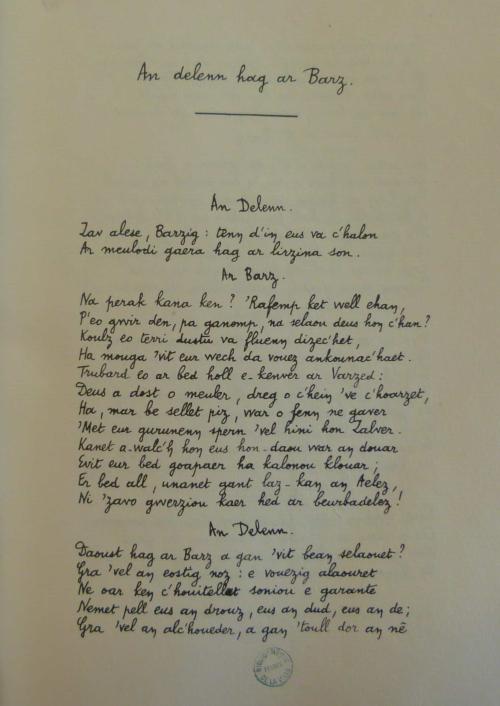 An delenn hag ar Barz.
An Delenn.
Zav alese, Barzig : tenn d'in eus va c'halon
Ar meulodi gaera hag ar lirzina son.
Ar Barz.
Na perak kana ken ? 'Rafemp ket well ehan,
P'eo gwir den, pa ganomp, na selaou deus hon c'han ?
Koulz eo terri dustu va fluenn dizec'het,
Ha mouga 'vit eur wech da vouez ankounac'haet.
Trubard eo ar bed holl e-kenver ar Varzed :
Deus a dost o meuler, dreg o c'hein 've c'hoarzet,
Ha, mar be sellet piz, war o fenn ne gaver
'Met eur gurunenn spern 'vel hini hon Zalver.
Kanet a-walc'h hon eus hon-daou war an douar
Evit eur bed goapaer ha kalonou klouar ;
Er bed all, unanet gant laz-kan an Aelez,
Ni 'zavo gwerziou kaer hed ar beurbadelez !
An Delenn.
Daoust hag ar Barz a gan 'vit bean selaouet ?
Gra 'vel an eostig noz : e vouezig alaouret
Ne oar ken c'houitellat soniou e garante
Nemet pell eus an drouz, eus an dud, eus an de ;
Gra 'vel an alc'houeder, a gan 'toull dor an nē